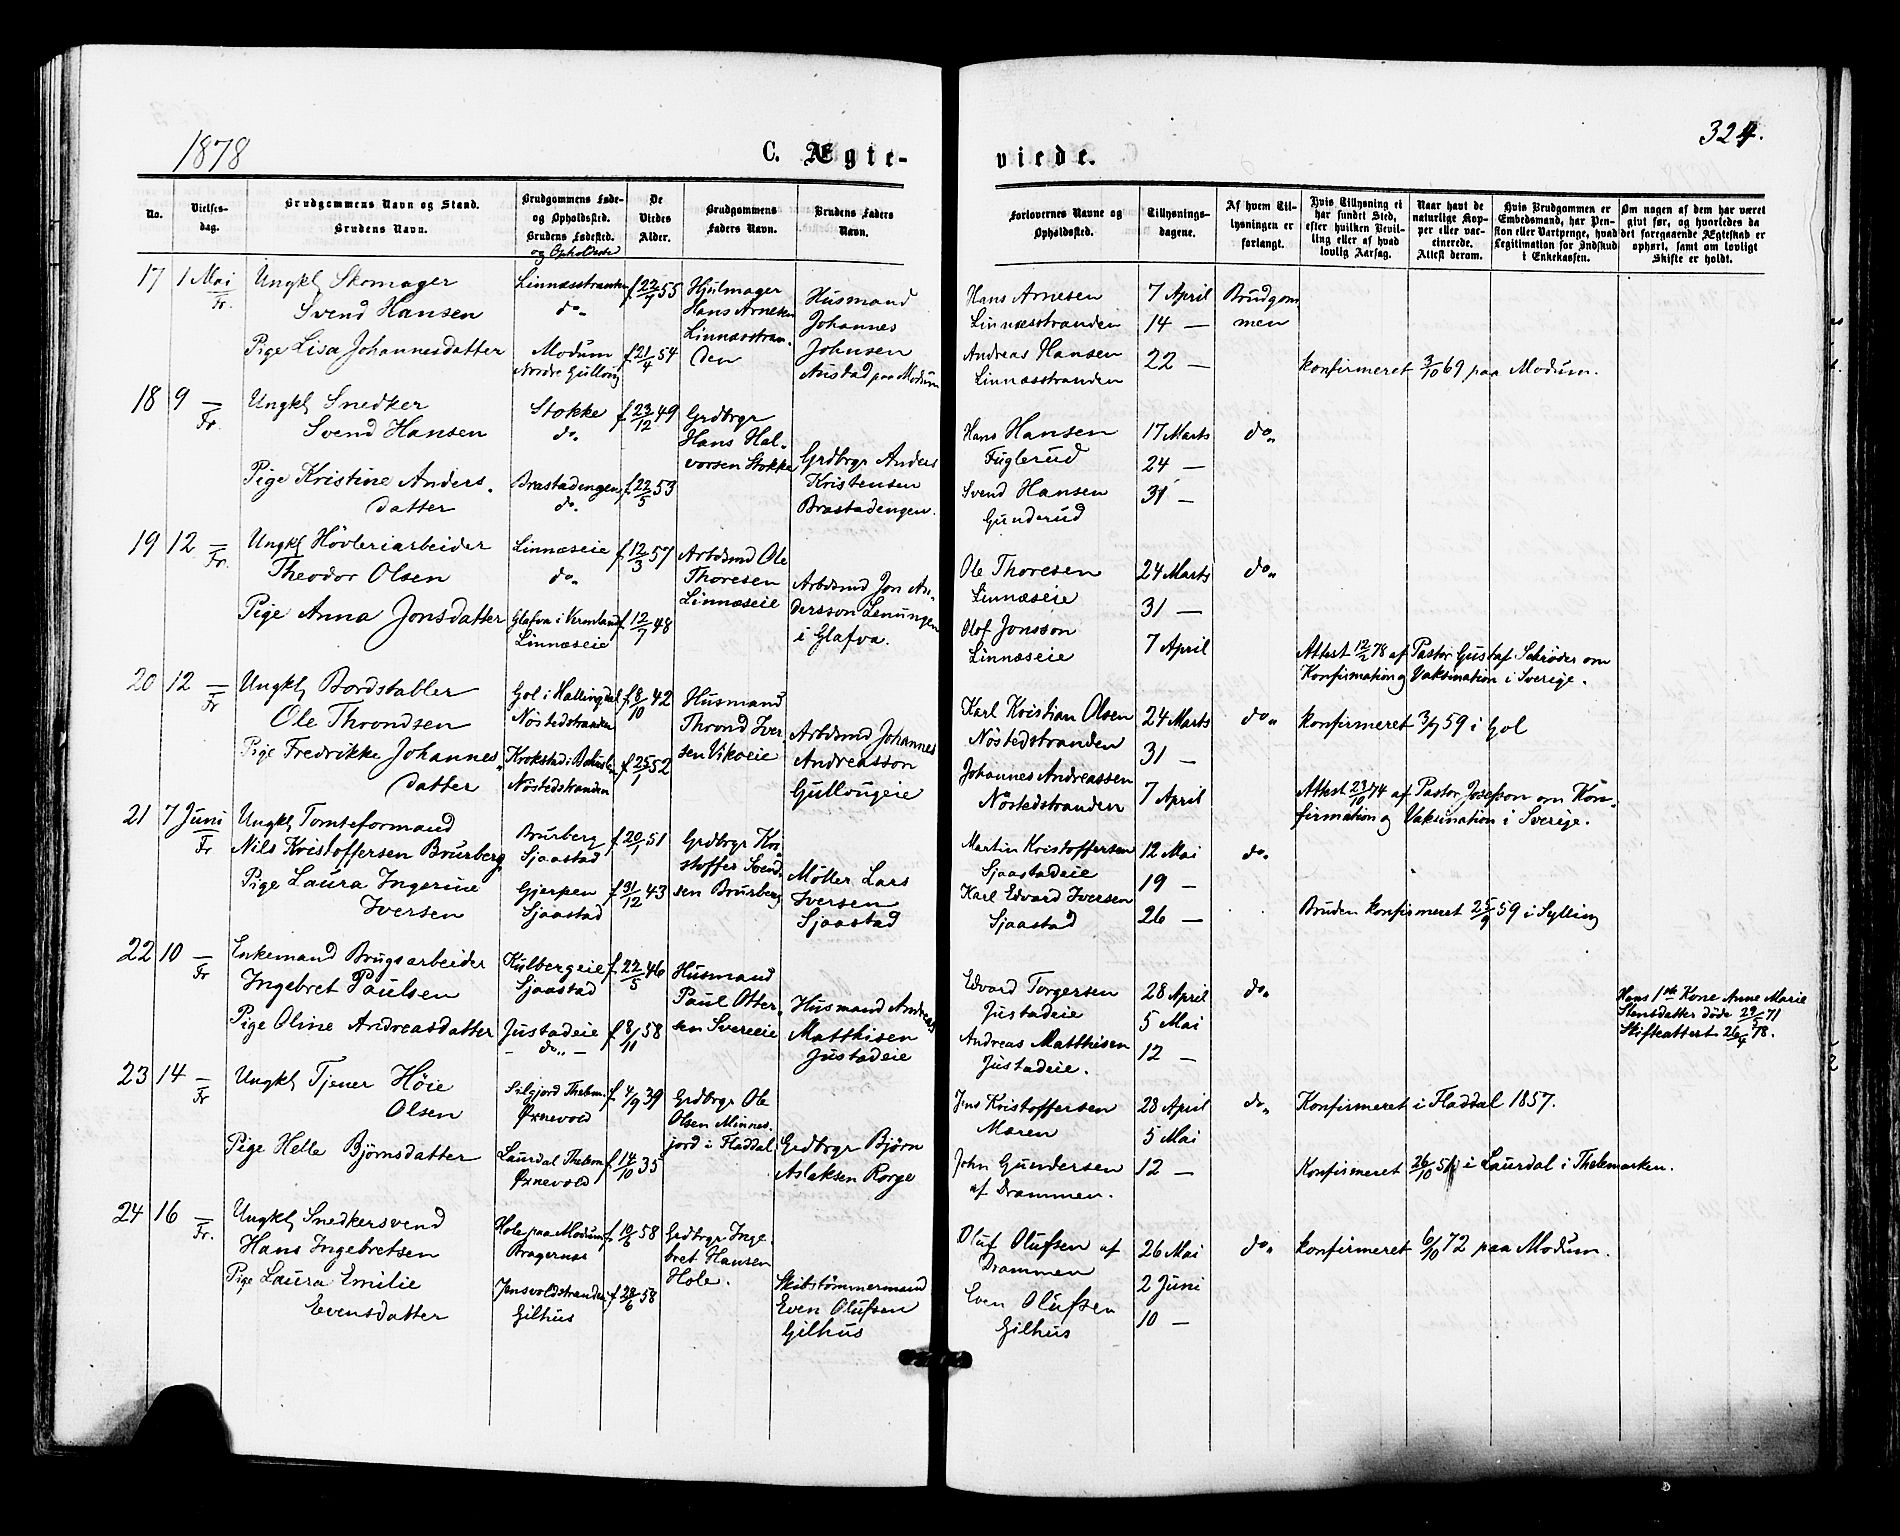 1878
C. Ægte-
No.
Vielses-
dag.
Brudgommens Navn og Stand.
Brudens Navn.
Brudgommens Føde-
og Opholdssted.
Brudens Fødested.
og Opholdssted
De
Viedes
Alder.
Brudgommens
Faders Navn.
Brudens Faders
Navn.
17 1 Mai
Fr.
Ungkl Skomager
Svend Hansen
Pige Lisa Johannesdatter
Linnæsstranden
do
Modum
Nordre Gulling
f 22/7 55
f 21/4 54
Hjulmager
Hans Arnesen
Linnæsstran-
den
Husmand
Johannes
Johnsen
Austad paa Modum
18 9 —
Fr.
Ungkl Snedker
Svend Hansen
Pige Kristine Anders-
datter
Stokke
do
Brastadengen
do
f 23/12 49
f 22/5 53
Grdbrgr
Hans Hal-
vorsen Stokke
Grdbrgr Anders
Kristensen
Brastadengen.
19 12 —
Fr.
Ungkl Høvleriarbeider
Theodor Olsen
Pige Anna Jonsdatter
Linnæseie
do
Glafva i Vermland
Linnæseie
f 12/3 57
f 12/7 48
Arbdsmd Ole
Thoresen
Linnæseie
Arbdsmd Jon An-
dersson Lenungen
i Glafva.
20 12 —
Fr
Ungkl Bordstabler
Ole Throndsen
Pige Fredrikke Johannes-
datter
Gol i Hallingdal
Nøstedstranden
Krokstad i Bahuslen
Nøstedstranden
f 8/10 42
f 25/1 52
Husmand
Thrond Iver
sen Vikoeie
Arbdsmd Johannes
Andreasson
Gullougeie
21 7 Juni
Fr
Ungkl Tomteformand
Nils Kristoffersen Brurberg
Pige Laura Ingerine
Iversen
Brurberg
Sjaastad
Gjerpen
Sjaastad
f 20/1 51
f 31/12 43
Grdbrgr Kri
stoffer Svend-
sen Brurberg
Møller Lars
Iversen
Sjaastad
22 10 —
Fr
Enkemand Brugsarbeider
Ingebret Paulsen
Pige Oline Andreasdatter
Kulbergeie
Sjaastad
Justadeie
— do —
f 22/5 46
f 8/11 58
Husmand
Paul Otter-
sen Svereeie
Husmand Andreas
Matthisen
Justadeie
23 14 —
Fr
Ungkl Tjener Høie
Olsen
Pige Helle Bjørnsdatter
Silgjord Thelem.
Ørnevold
Laurdal Thelem
Ørnevold
f 4/9 39
f 14/10 35
Grdbrgr Ole
Olsen Minnes-
jord i Fladdal
Grdbrgr Bjørn
Aslaksen Rorge
24 16 —
Fr.
Ungkl Snedkersvend
Hans Ingebretsen
Pige Laura Emilie
Evensdatter
Hole paa Modum
Bragernæs
Jensvoldstranden
Gilhus
f 19/6 58
f 28/6 58
Grdbrgr Inge-
bret Hansen
Hole.
Skibstømmermand
Even Olufsen
Gilhus
324.
viede.
Forlovernes Navne og
Opholdssted.
Tillysnings-
dagene.
Af hvem Til-
lysningen er
forlangt.
Hvis Tillysning ei
har fundet Sted,
efter hvilken Bevil-
ling eller af hvad
lovlig Aarsag.
Naar havt de
naturlige Kop-
per eller vac-
cinerede.
Attest derom.
Hvis Brudgommen er
Embedsmand, har Pen-
sion eller Vartpenge, hvad
Legitimation for Indskud
i Enkekassen.
Om nogen af dem har været
givt før, og hvorledes da
det foregaaende Ægteskab er
ophørt, samt om lovligt
Skifte er holdt.
Hans Arnesen
Linnæsstranden
Andreas Hansen
Linnæsstranden
7 April
14 —
22 —
Brudgom
men
konfirmeret 3/10 69 paa Modum.
Hans Hansen
Fuglerud
Svend Hansen
Gunderud
17 Marts
24 —
31 —
do
Ole Thoresen
Linnæseie
Olof Jonsson
Linnæseie
24 Marts
31 —
7 April
do
Attest 12/2 78 af Pastor Gustaf Schrøder om
Konfirmation og Vaksination i Sverige.
Karl Kristian Olsen
Nøstedstranden
Johannes Andreassen
Nøstedstranden
24 Marts
31 —
7 April
do
konfirmeret 3/7 59 i Gol
Attest 23/10 74 af Pastor Josefson om Kon-
firmation og Vaksination i Sverige.
Martin Kristoffersen
Sjaastadeie
Karl Edvard Iversen
Sjaastad
12 Mai
19 —
26 —
do
Bruden konfirmeret 25/9 59 i Sylling
Edvard Torgersen
Justadeie
Andreas Matthisen
Justadeie.
28 April
5 Mai
12 —
do
Hans 1ste Kone Anne Marie
Stensdatter døde 29/5 71
Skifteattest 26/4 78.
Jens Kristoffersen
Maren
John Gundersen
af Drammen.
28 April
5 Mai
12 —
do
Konfirmeret i Fladdal 1857.
Konfirmeret 26/10 51 i Laurdal i Thelemarken.
Oluf Olufsen af
Drammen
Even Olufsen
Gilhus
26 Mai
2 Juni
10 —
do
konfirmeret 6/10 72 paa Modum.